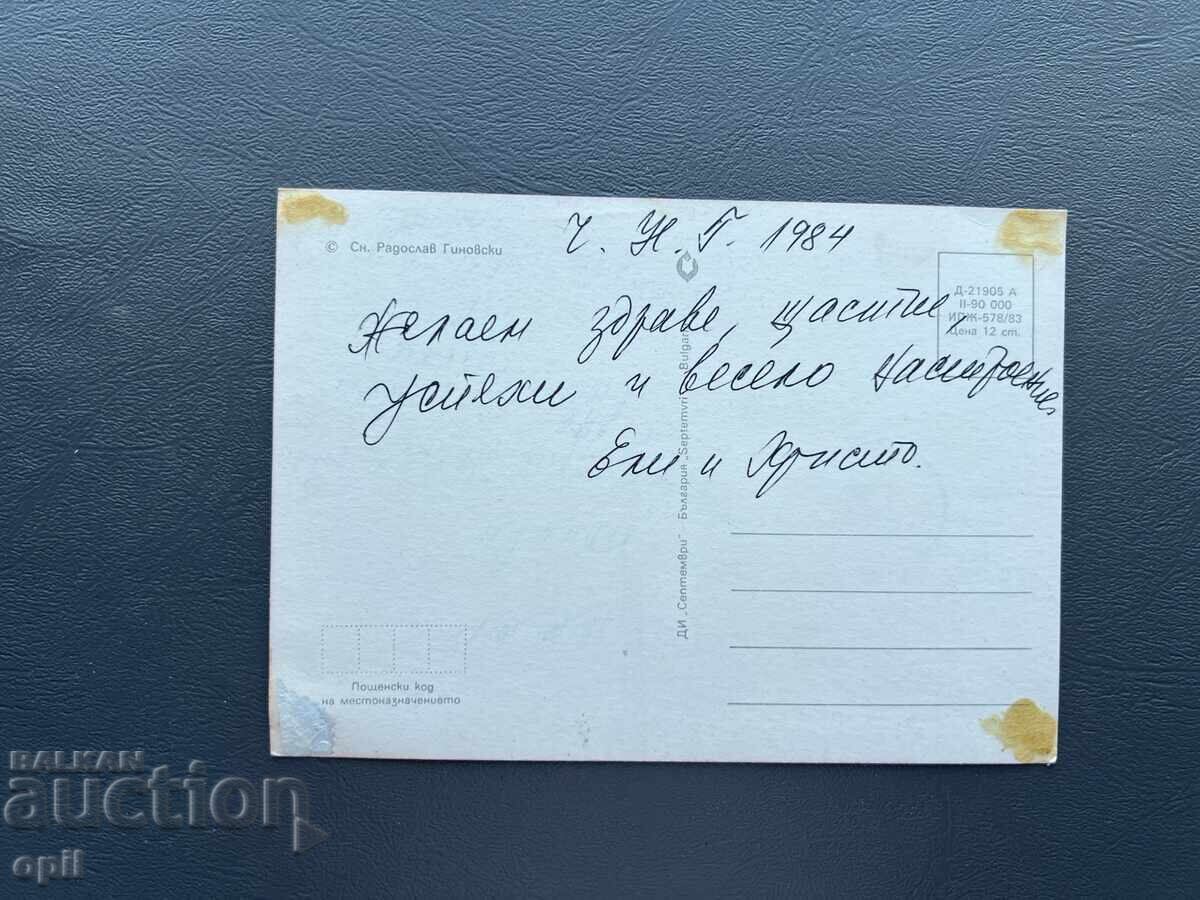 Ч. Н. Г. 1984
© Сн. Радослав Гиновски
Д-21905 А
II-90 000
ИДЖ-578/83
Цена 12 ст.
Желаем здраве, щастие,
успехи и весело настроение
Ели и Христо.
ДИ „Септември" - България „Septemvri" - Bulgaria
Пощенски код
на местоназначението
BALKAN
auction
opil